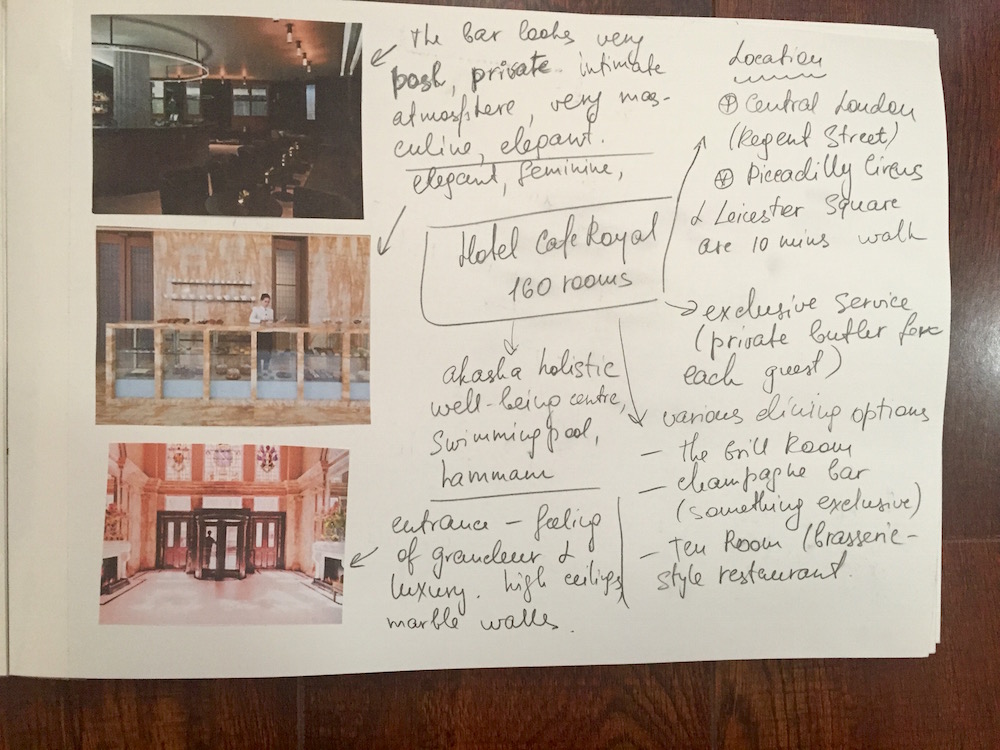 The bar looks very
posh, private intimate
atmosphere, very mas-
culine, elegant.
elegant, feminine,
Hotel Cafe Royal
160 rooms
akasha holistic
well-being centre,
Swimming pool,
hammam
entrance – feeling
of grandeur &
luxury. high ceilings,
marble walls.
Location
Central London
(Regent Street)
Piccadilly Circus
& Leicester Square
are 10 mins walk
exclusive service
(private butler for
each guest)
various dining options
– the Grill Room
– champagne bar
(something exclusive)
– Ten Room (Brasserie-
style restaurant.